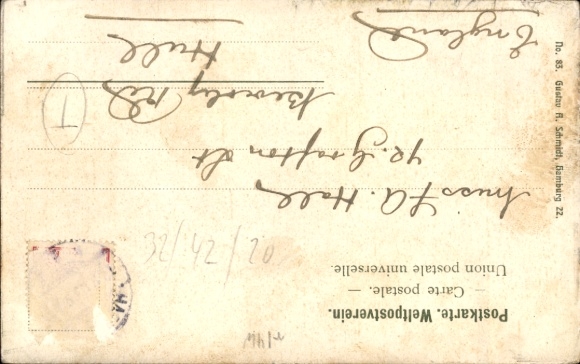 Postkarte. Weltpostverein.
— Carte postale. —
Union postale universelle.
32/42/20
Miss F A. Hall,
42. Grafton St
Beverley Rd
Hull
England
T
HA
No. 83. Gustav A. Schmidt, Hamburg 22.